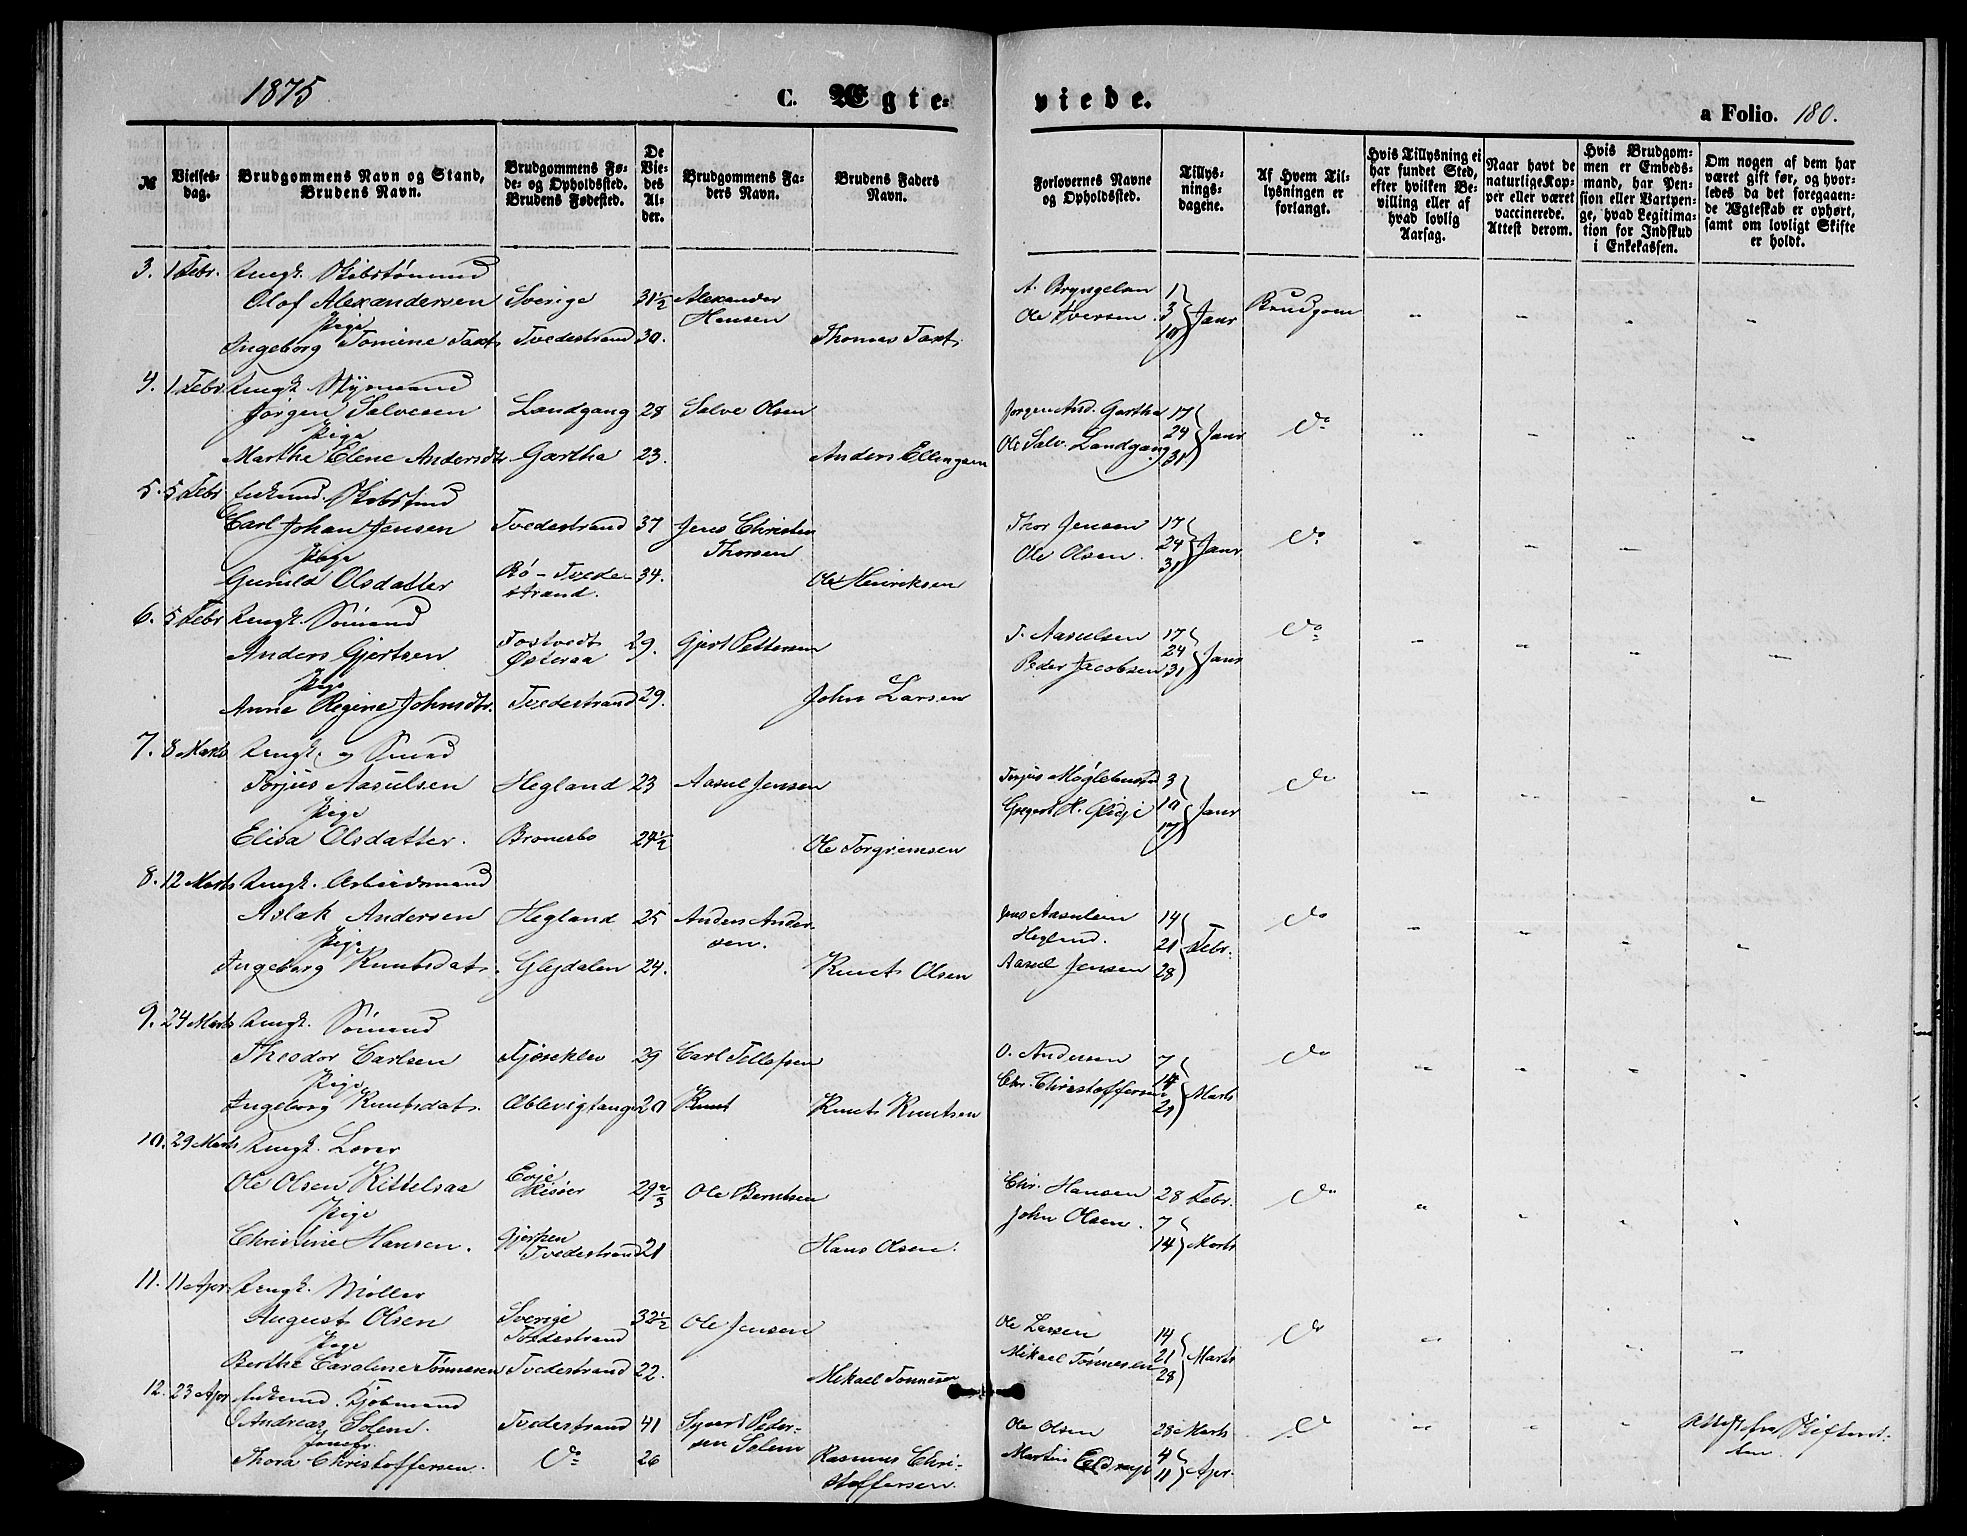 1875
C. Ægte-
viede.
a Folio. 180.
№
Vielses-
dag.
Brudgommens Navn og Stand,
Brudens Navn.
Brudgommens Fø-
de- og Opholdssted.
Brudens Fødested.
De
Vie-
des
Al-
der.
Brudgommens Fa-
ders Navn.
Brudens Faders
Navn.
Forlovernes Navne
og Opholdssted.
Tillys-
nings-
dagene.
Af Hvem Til-
lysningen er
forlangt.
Hvis Tillysning ei
har fundet Sted,
efter hvilken Be-
villing eller af
hvad lovlig
Aarsag.
Naar havt de
naturlige Kop-
per eller været
vaccinerede.
Attest derom.
Hvis Brudgom-
men er Embeds-
mand, har Pen-
sion eller Vartpen-
ge, hvad Legitima-
tion for Indskud
i Enkekassen.
Om nogen af dem har
været gift før, og hvor-
ledes da det foregaaen-
de Ægteskab er ophørt,
samt om lovligt Skifte
er holdt.
3. 1 Febr. Ungk. Skibstømmd
Olof Alexandersen Sverige 31½ Alexander Hansen A. Bryngelsen 1 Brudgom " " " "
Pige Ole Iversen 3 Janr
Ingeborg Tomine Taxt Tvedestrand 30. Thomas Taxt. 10
4. 1 Febr Ungk. Styrmand
Jørgen Salvesen Landgang 28 Salve Olsen Jørgen And. Gartha 17 Do " " " "
Pige Ole Salv. Landgang 24 Janr
Marthe Elene Andersdtr Gartha 23. Anders Ellingsen 31
5. 5 Febr Enkemd. Skibsfmd
Carl Johan Jensen Tvedestrand 37 Jens Christen Thorsen Thor Jensen 17 Do " " "
Pige Ole Olsen. 24 Janr
Gunild Olsdatter Bø - Tvedestrand. 34. Ole Henriksen 31
6. 5 Febr Ungk. Sømand
Anders Gjertsen Tostvedt Østeraa 29. Gjert Pettersen T. Aasulsen 17 Do " " " "
Pige Peder Jacobsen 24 31 Janr
Anne Regine Johnsdtr. Tvedestrand 29. John Larsen
7. 8 Marts Ungk. og Smed
Torjus Aasulsen Hegland 23 Aasul Jensen Torjus 3 Do " " " "
Pige 10 Janr
Elisa Olsdatter. Bronesbo 24½ Ole Torgrimsen 17
8. 12 Marts Ungk. Arbeidsmand
Aslak Andersen Hegland 25 Anders Andersen. Jens Aasulsen Hegland. 14 Do " " " "
Pige 21 Febr.
Ingeborg Knutsdatr. Glejdalen 24. Knut Olsen Aasul Jensen 28
9. 24 Marts Ungk. Sømand
Theodor Carlsen 29 Carl Tellefsen O. Andersen 7 Do " " " "
Pige Chr. Christoffersen 14 Marts
Ingeborg Knutsdatr. 20 Knut Knut Knutsen 21
10. 29 Marts Ungk.
Ole Olsen Kittelsaa Evje Risøer 29⅔ Ole Berntsen Chr. Hansen 28 Febr. Do " " " "
Pige John Olsen. 7
Christine Hansen. Gjerpen Tvedestrand 21 Hans Olsen. 14 Marts
11. 11 Apr. Ungk. Møller
August Olsen Sverige Tvedestrand 32½ Ole Jensen Ole Larsen 14 Do " " " "
Pige Mikael Tønnesen 21 Marts
Berthe Caroline Tønnesen Tvedestrand 22. Mikael Tønnesen 28
12. 23 Apr Enkemd. Kjøbmand
Andreas Solem. Tvedestrand 41 Syvert Pedersen Solem Ole Olsen 28 Marts Do " " " Attest fra Skifteretten
Jomfr. Martin 4
Thora Christoffersen. Do 26 Rasmus Christoffersen. 11 Apr.